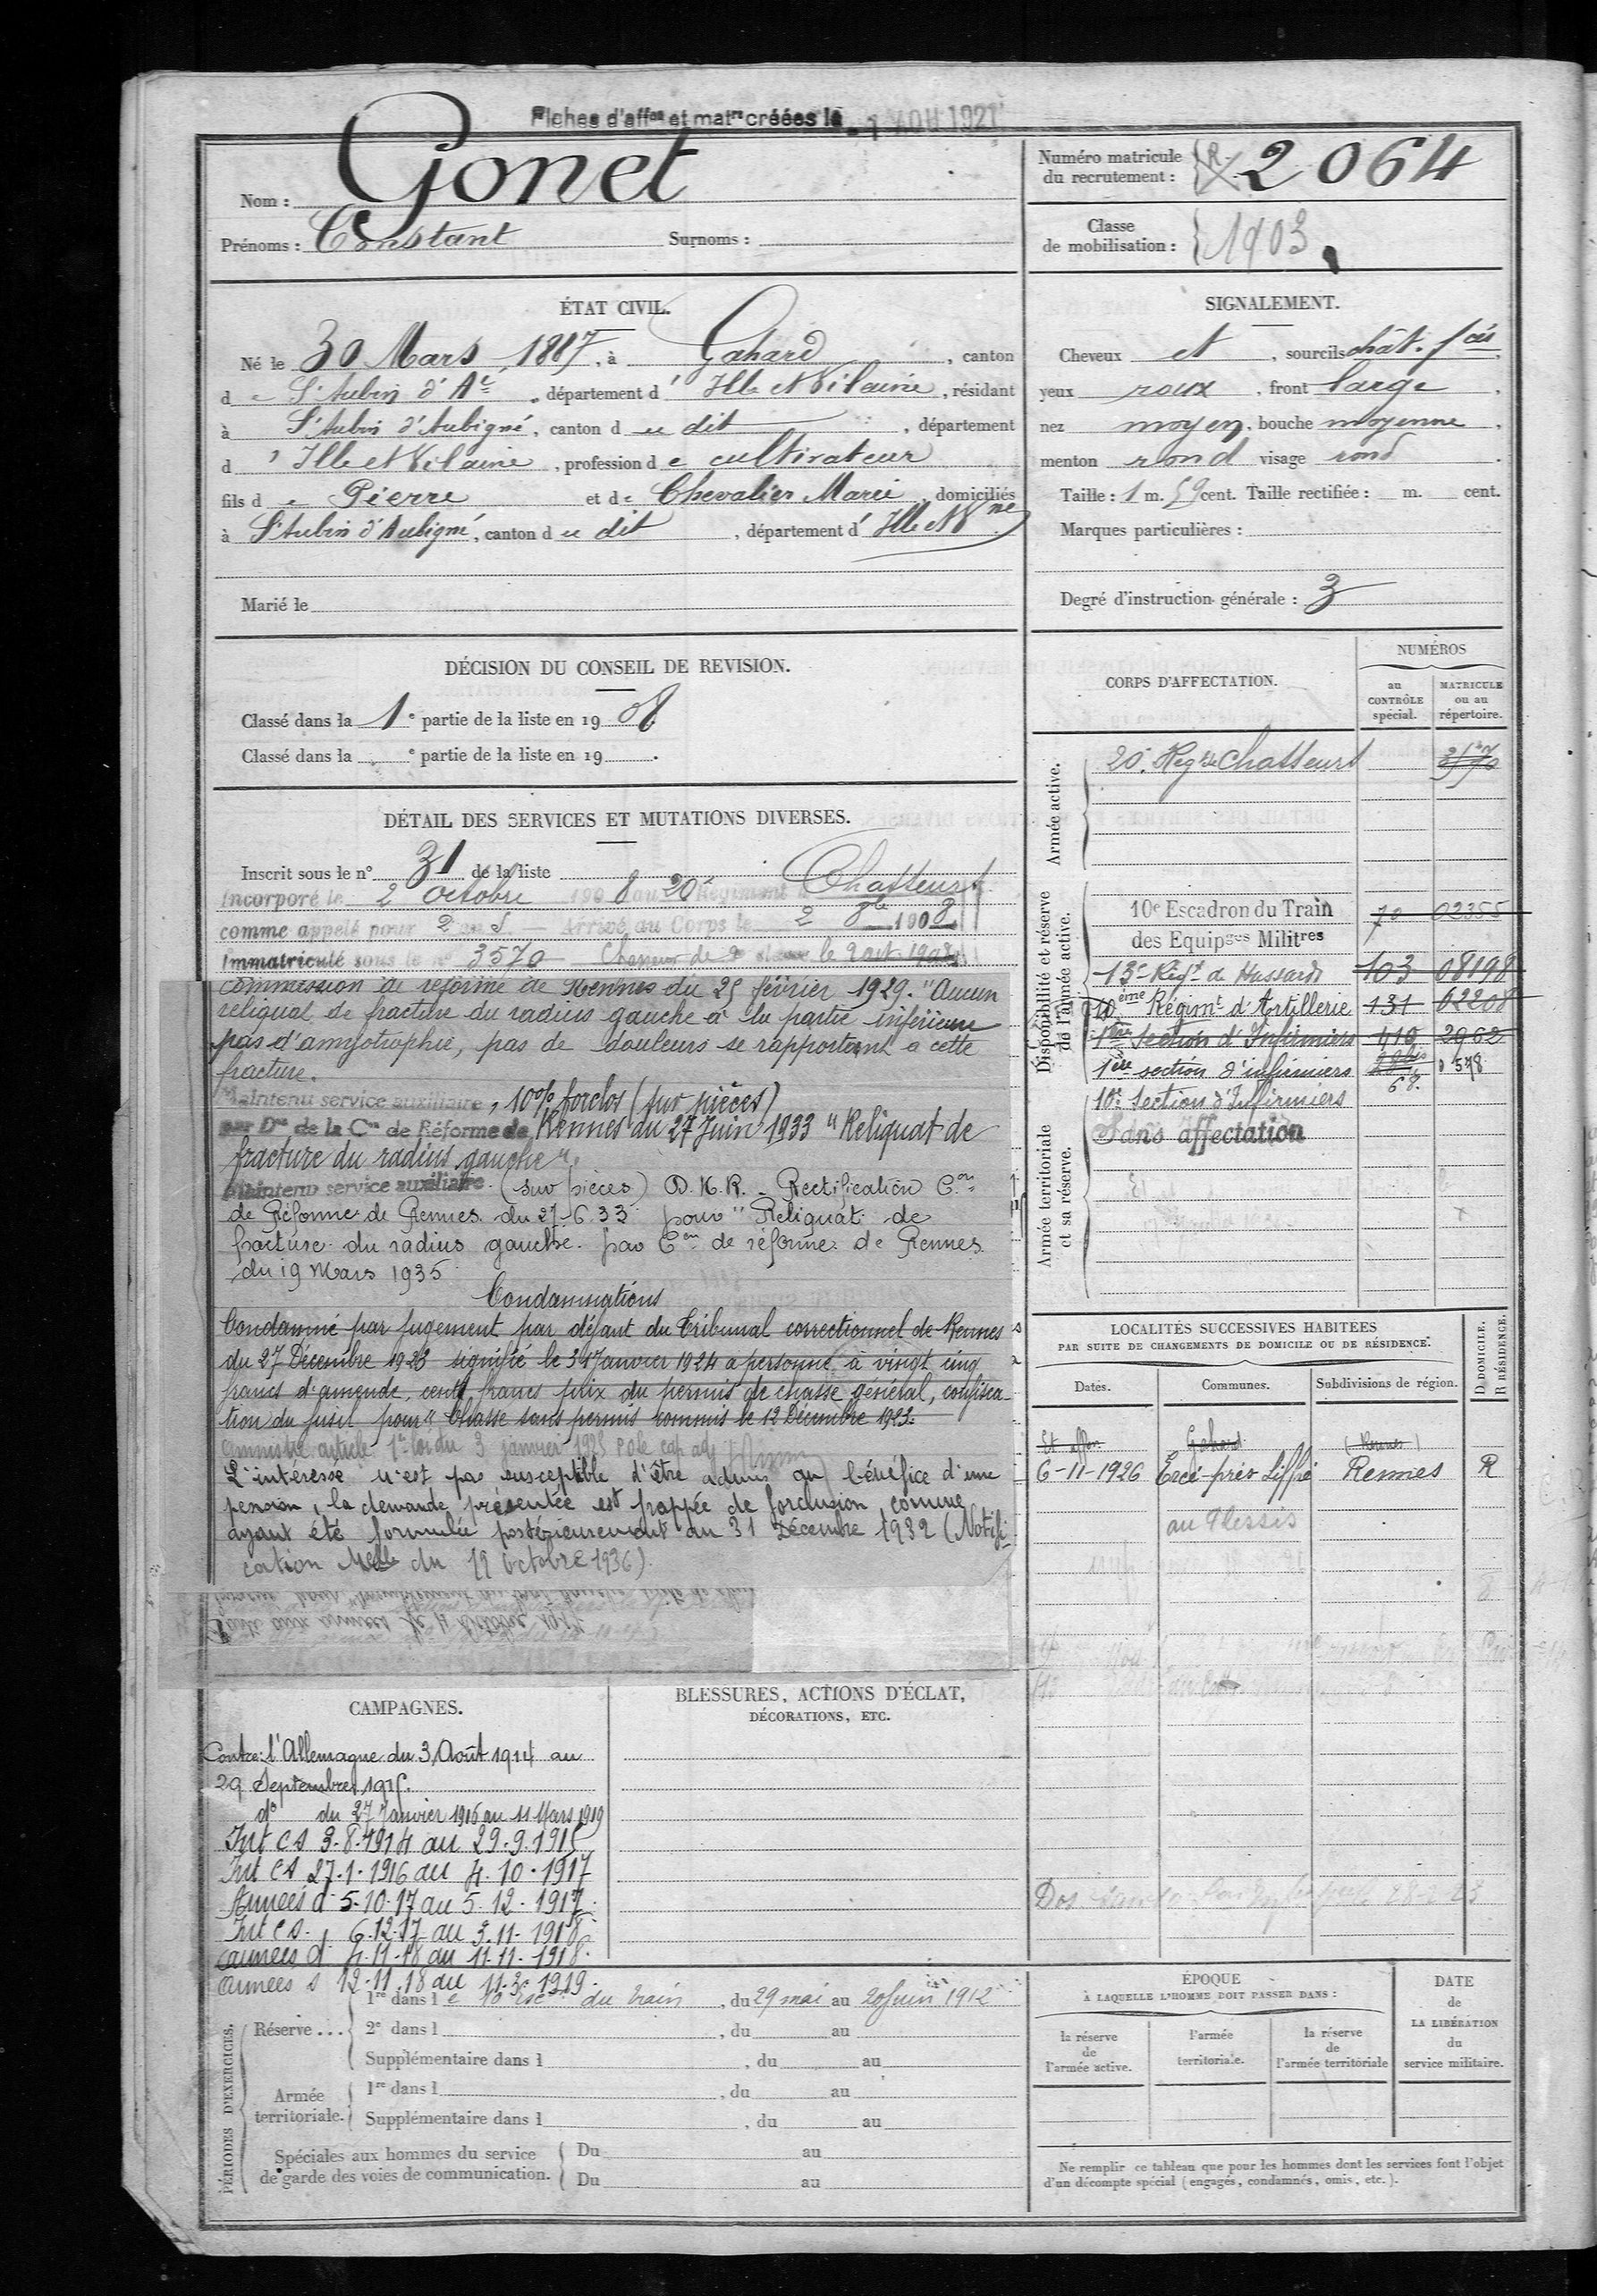 Fiches d'aff^on et mat^re créées le 1 AOU 1921
Nom : Gonet
Prénoms : Constant Surnoms :
Numéro matricule du recrutement : R. 2064
Classe de mobilisation : 1903
ÉTAT CIVIL.
Né le 30 Mars 1887, à Gahard, canton
de S^t Aubin d'A^é, département d'Ille et Vilaine, résidant
à S^t Aubin d'Aubigné, canton du dit, département
d'Ille et Vilaine, profession de cultivateur
fils de Pierre et de Chevalier Marie, domiciliés
à S^t Aubin d'Aubigné, canton du dit, département d'Ille et V^ne
Marié le
SIGNALEMENT.
Cheveux et, sourcils chât. f^cés,
yeux roux, front large,
nez moyen, bouche moyenne,
menton rond visage rond.
Taille : 1 m. 59 cent. Taille rectifiée : m. cent.
Marques particulières :
Degré d'instruction générale : 3
DÉCISION DU CONSEIL DE REVISION.
Classé dans la 1^e partie de la liste en 1908.
Classé dans la ^e partie de la liste en 19 .
DÉTAIL DES SERVICES ET MUTATIONS DIVERSES.
Inscrit sous le n° 31 de la liste
Incorporé le 2 Octobre 1908 au 20^e Régiment de Chasseurs
comme appelé pour 2 ans Arrivé au Corps le 2 8^bre 1908
Immatriculé sous le n° 3570 Chasseur de 2^e classe le 2 oct. 1908
Commission de réforme de Rennes du 25 février 1929. "Aucun
reliquat de fracture du radius gauche à la partie inférieure
pas d'amyotrophie, pas de douleurs se rapportant à cette
fracture.
Maintenu service auxiliaire, 10% forclos (sur pièces)
par D^on de la C^on de Réforme de Rennes du 27 Juin 1933 "Reliquat de
fracture du radius gauche".
Maintenu service auxiliaire. (sur pièces) D.K.R. - Rectification C^on
de Réforme de Rennes du 27-6-33 pour "Reliquat de
fracture du radius gauche. par C^on de réforme de Rennes
du 19 Mars 1935
Condamnations
Condamné par jugement par défaut du Tribunal correctionnel de Rennes
du 27 Décembre 1923 signifié le 31 Janvier 1924 a personne à vingt cinq
francs d'amende, cent francs prix du permis de chasse général, confisca-
tion du fusil pour "Chasse sans permis commis le 12 Décembre 1923.
Amnistié article 1^er loi du 3 janvier 1925
L'intéressé n'est pas susceptible d'être admis au bénéfice d'une
pension, la demande présentée est frappée de forclusion comme
ayant été formulée postérieurement au 31 Décembre 1932 (Notifi-
cation M^elle du 19 Octobre 1936).
CORPS D'AFFECTATION.
NUMÉROS
au CONTRÔLE spécial.
MATRICULE ou au répertoire.
Armée active.
20^e Reg^t de Chasseurs 3570
Disponibilité et réserve de l'armée active.
10^e Escadron du Train 70 02355
des Equip^ges Milit^res
13^e Rég^t de Hussards 103 08198
10^ème Régim^t d'Artillerie 131 62208
1^ère Section d'Infirmiers 410 2962
1^ère section d'infirmiers 68. 0578
Armée territoriale et sa réserve.
10^e Section d'Infirmiers
Sans affectation
LOCALITÉS SUCCESSIVES HABITÉES
PAR SUITE DE CHANGEMENTS DE DOMICILE OU DE RÉSIDENCE.
Dates. Communes. Subdivisions de région. D DOMICILE. R RÉSIDENCE.
Gahard (Rennes)
6-11-1926 Ercé-près Liffré Rennes R
au Plessis
CAMPAGNES.
Contre l'Allemagne du 3 Août 1914 au
29 Septembre 1915.
d° du 27 Janvier 1916 au 11 Mars 1919
Int CS 3.8.1914 au 29.9.1915
Int CS 27.1.1916 au 4.10.1917
Armées d 5.10.17 au 5.12.1917.
Int CS. 6.12.17 au 3.11.1918
armées d 4.11.18 au 11.11.1918.
Armées s 12.11.18 au 11.3.1919.
BLESSURES, ACTIONS D'ÉCLAT,
DÉCORATIONS, ETC.
PÉRIODES D'EXERCICES.
Réserve ... 1^re dans le 10^e Esc^on du train, du 29 mai au 20 Juin 1912
2^e dans l , du au
Supplémentaire dans l , du au
Armée territoriale. 1^re dans l , du au
Supplémentaire dans l , du au
Spéciales aux hommes du service
de garde des voies de communication.
Du au
Du au
ÉPOQUE
À LAQUELLE L'HOMME DOIT PASSER DANS :
la réserve de l'armée active.
l'armée territoriale.
la réserve de l'armée territoriale
DATE de LA LIBÉRATION du service militaire.
Ne remplir ce tableau que pour les hommes dont les services font l'objet
d'un décompte spécial (engagés, condamnés, omis, etc.).